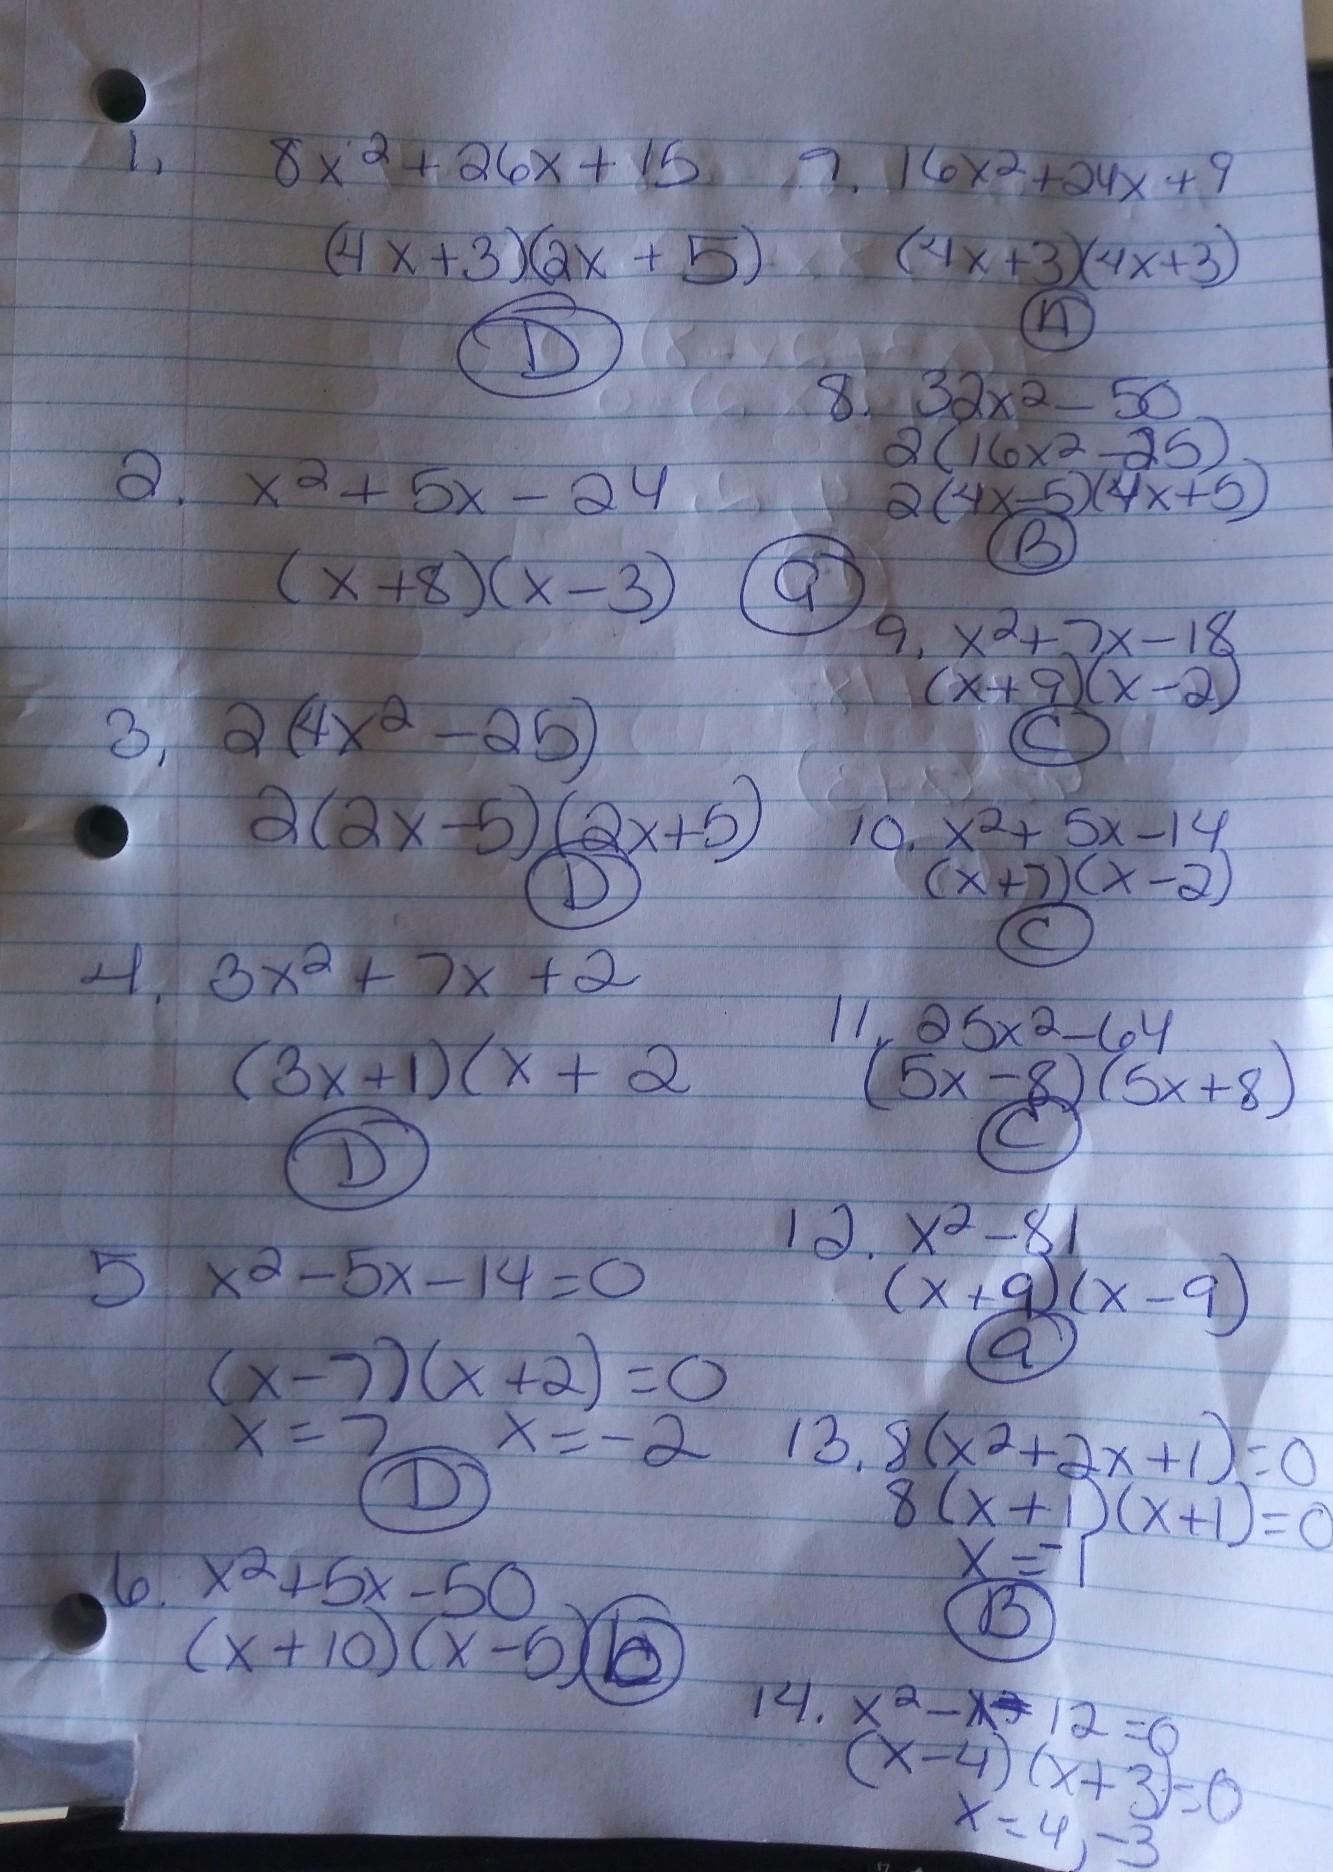 1. 8x² + 26x + 15
(4x+3)(2x + 5)
D
2. x² + 5x - 24
(x+8)(x-3) a
3. 2(4x² - 25)
2(2x-5)(2x+5)
D
4. 3x² + 7x + 2
(3x+1)(x + 2
D
5 x² - 5x - 14 = 0
(x-7)(x+2) = 0
x = 7 x = -2
D
6. x² + 5x - 50
(x+10)(x-5) b
7. 16x² + 24x + 9
(4x+3)(4x+3)
A
8. 32x² - 50
2(16x² - 25)
2(4x-5)(4x+5)
B
9. x² + 7x - 18
(x+9)(x-2)
C
10. x² + 5x - 14
(x+7)(x-2)
C
11. 25x² - 64
(5x-8)(5x+8)
C
12. x² - 81
(x+9)(x-9)
a
13. 8(x² + 2x + 1) = 0
8(x+1)(x+1) = 0
x = -1
B
14. x² - x - 12 = 0
(x-4)(x+3) = 0
x = 4, -3